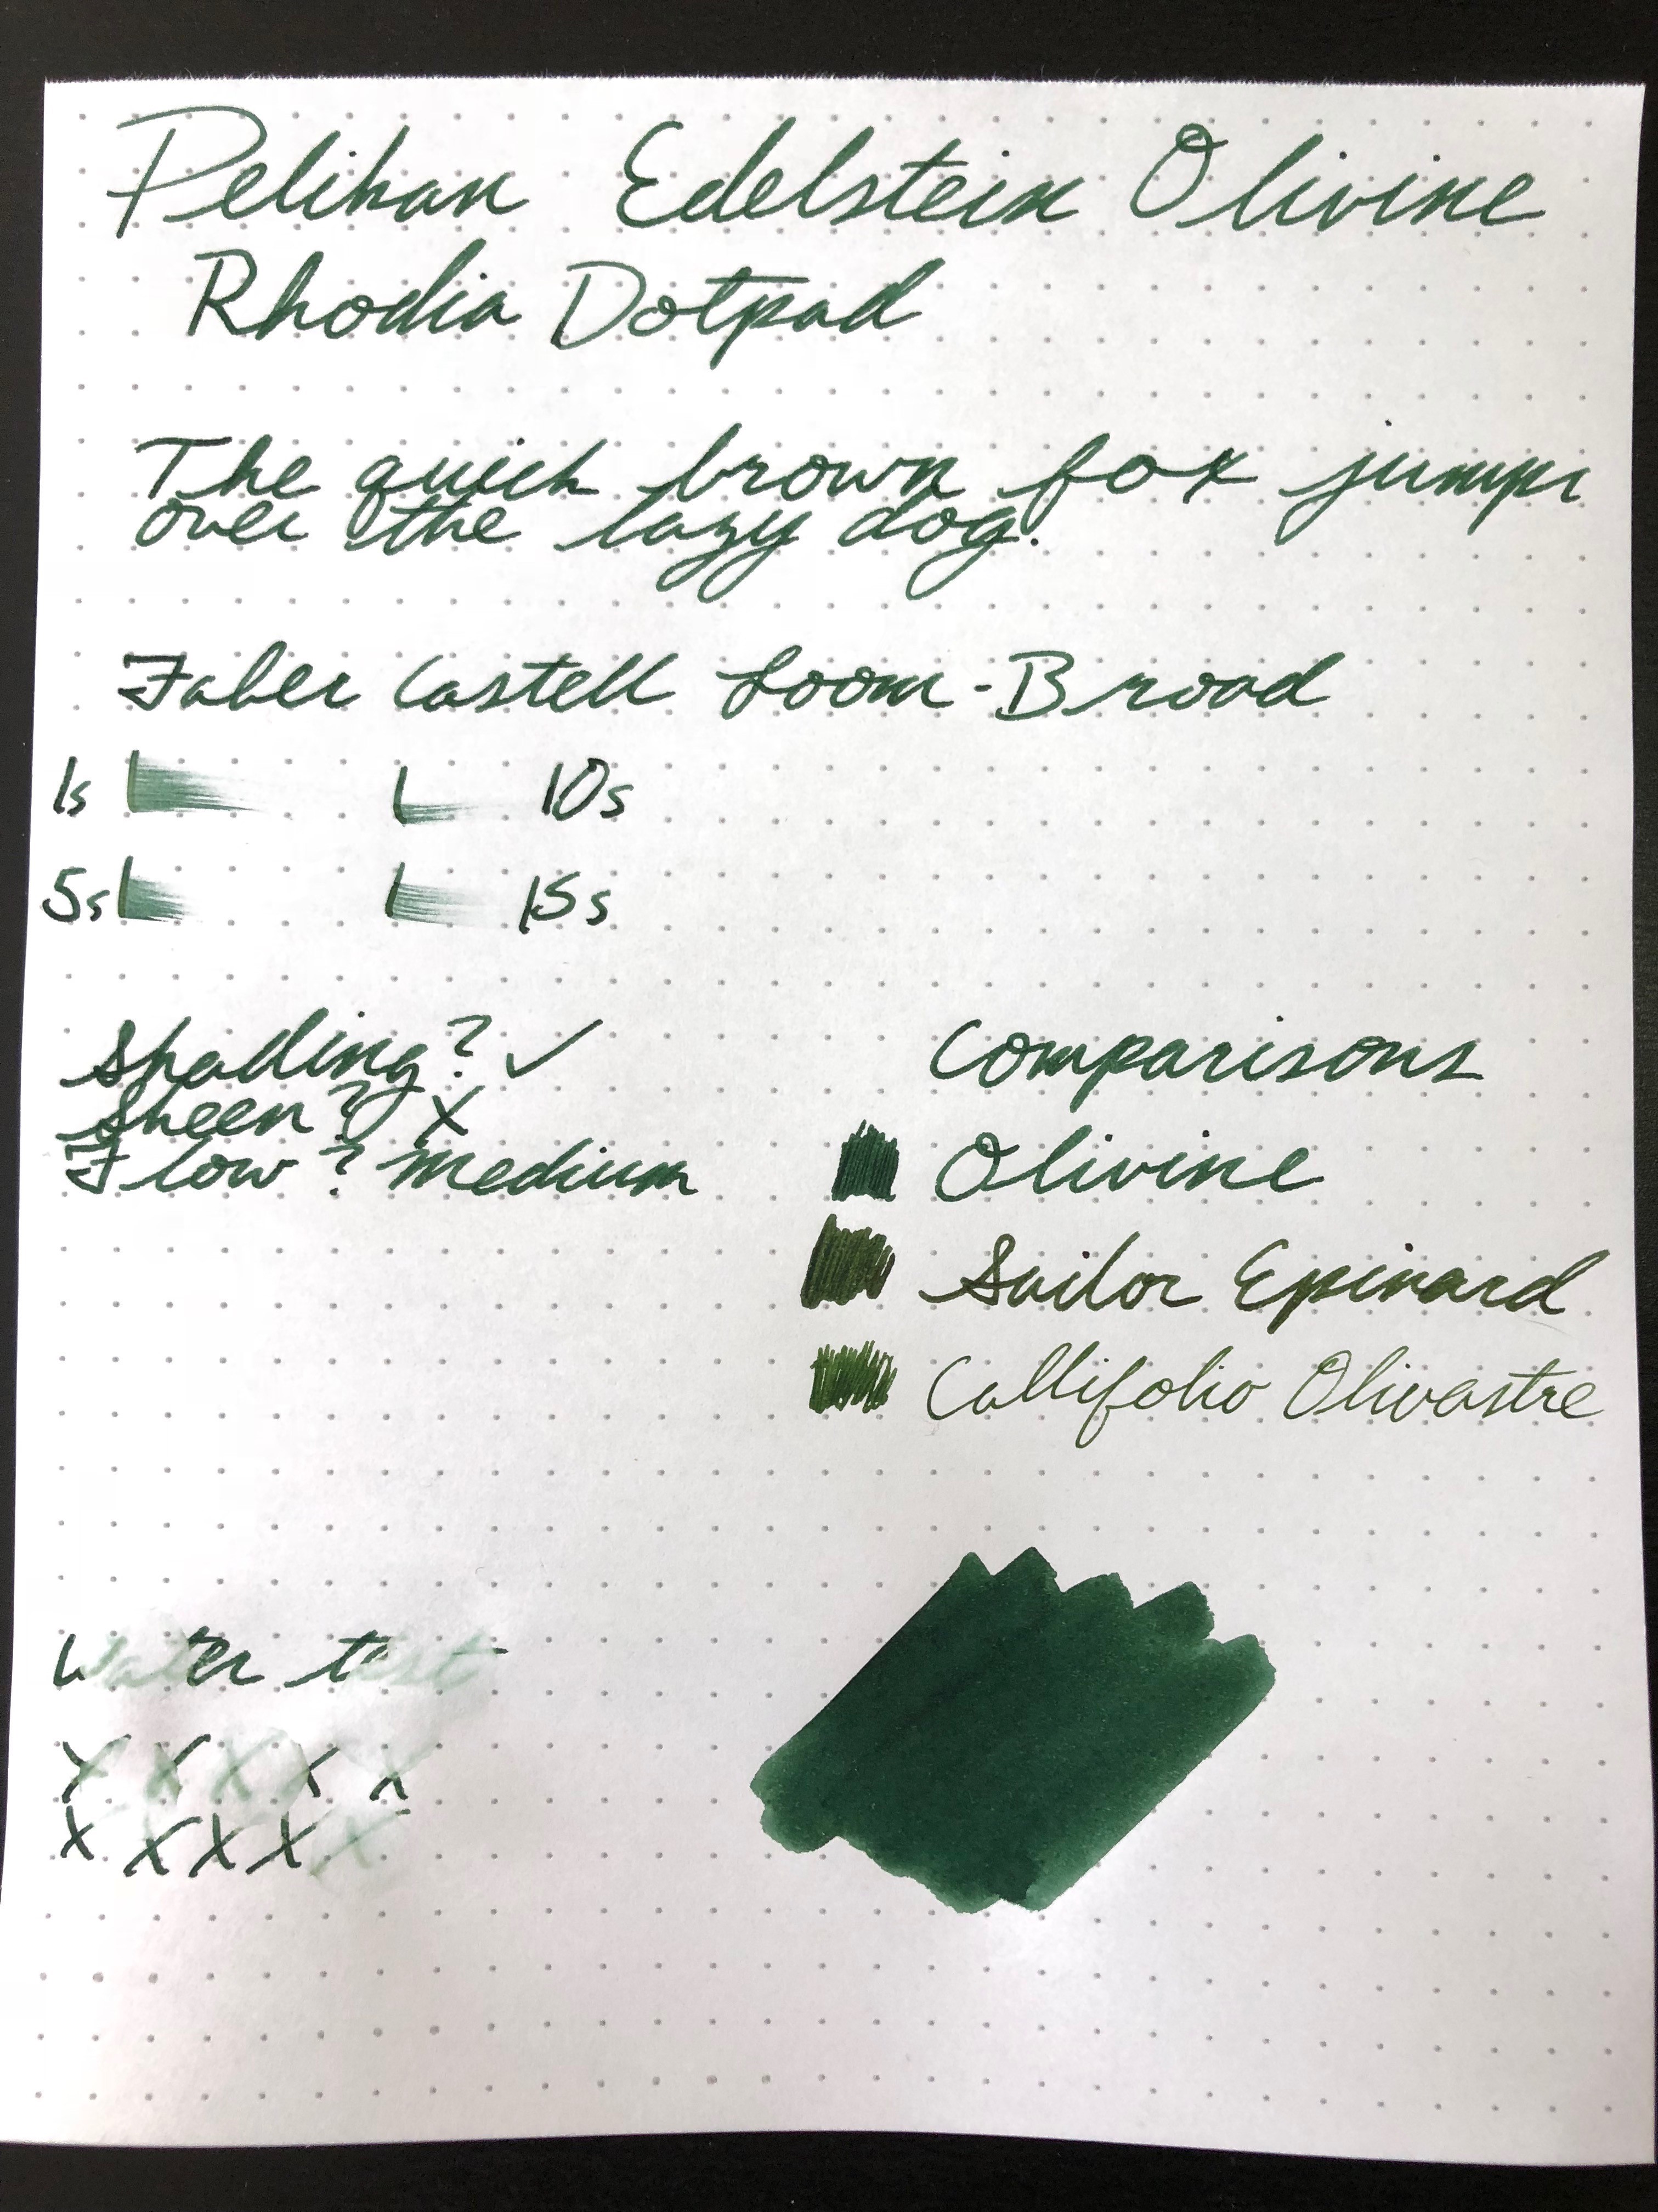 Pelikan Edelstein Olivine
Rhodia Dotpad
The quick brown fox jumps
over the lazy dog.
Faber Castell Loom-Broad
1s 10s
5s 15s
Shading? ✓
Sheen? X
Flow? medium
Comparisons
Olivine
Sailor Epinard
Callifolio Olivastre
Water test
X X X X X
X X X X X